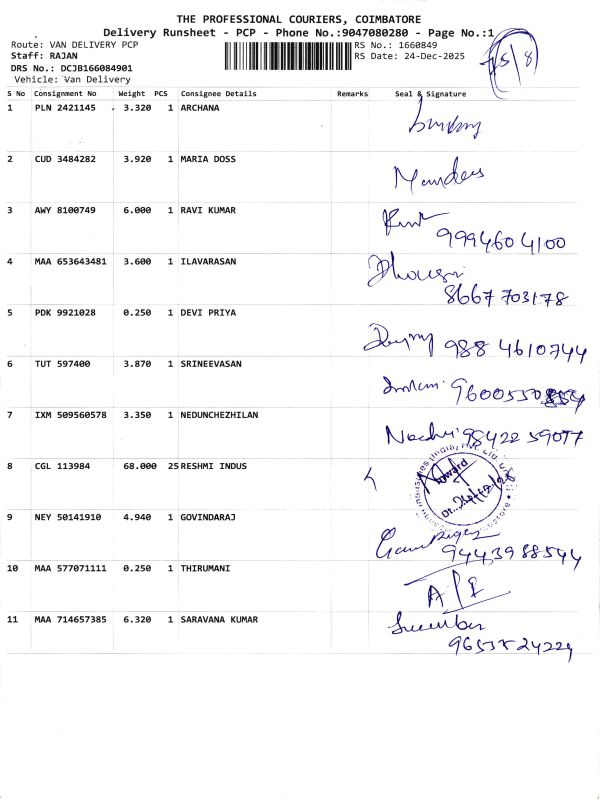 THE PROFESSIONAL COURIERS, COIMBATORE
Delivery Runsheet - PCP - Phone No.:9047080280 - Page No.:1
Route: VAN DELIVERY PCP RS No.: 1660849
Staff: RAJAN RS Date: 24-Dec-2025
DRS No.: DCJB166084901
Vehicle: Van Delivery
S No Consignment No Weight PCS Consignee Details Remarks Seal & Signature
1 PLN 2421145 3.320 1 ARCHANA
2 CUD 3484282 3.920 1 MARIA DOSS
3 AWY 8100749 6.000 1 RAVI KUMAR
9994604100
4 MAA 653643481 3.600 1 ILAVARASAN
8667703178
5 PDK 9921028 0.250 1 DEVI PRIYA
988 4610744
6 TUT 597400 3.870 1 SRINEEVASAN
7 IXM 509560578 3.350 1 NEDUNCHEZHILAN
98422 59077
8 CGL 113984 68.000 25 RESHMI INDUS
9 NEY 50141910 4.940 1 GOVINDARAJ
9443988544
10 MAA 577071111 0.250 1 THIRUMANI
11 MAA 714657385 6.320 1 SARAVANA KUMAR